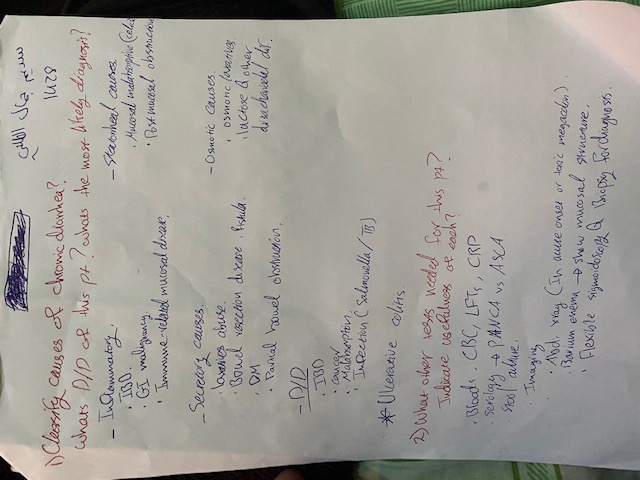 سديم جمال
1428
1) Classify causes of chronic diarrhea?
Whats D/D of this pt? whats the most likely diagnosis?
- Inflammatory.
· IBD.
· GI malignancy.
· Immune-related mucosal disease.
- Steatorrheal causes.
· Mucosal malabsorptive (celia
· Post mucosal obstruction
- Secretory causes.
· laxatives abuse.
· Bowel resection disease fistula.
· DM
· Partial bowel obstruction.
- Osmotic causes.
· osmotic laxatives.
· lactose & other
disaccharides def.
- D/D
· IBD
· cancer
· Malabsorption.
· Infection (Salmonella / TB)
* Ulcerative colitis.
2) What other tests needed for this pt?
Indicate usefulness of each?
· Bloods. CBC, LFTs, CRP
· Serology → PANCA vs ASCA
· Stool culture.
· Imaging
· Abd. xray (In acute onset or toxic megacolon).
· Barium enema → show mucosal structure.
· Flexible sigmoidoscopy & Biopsy for diagnosis.